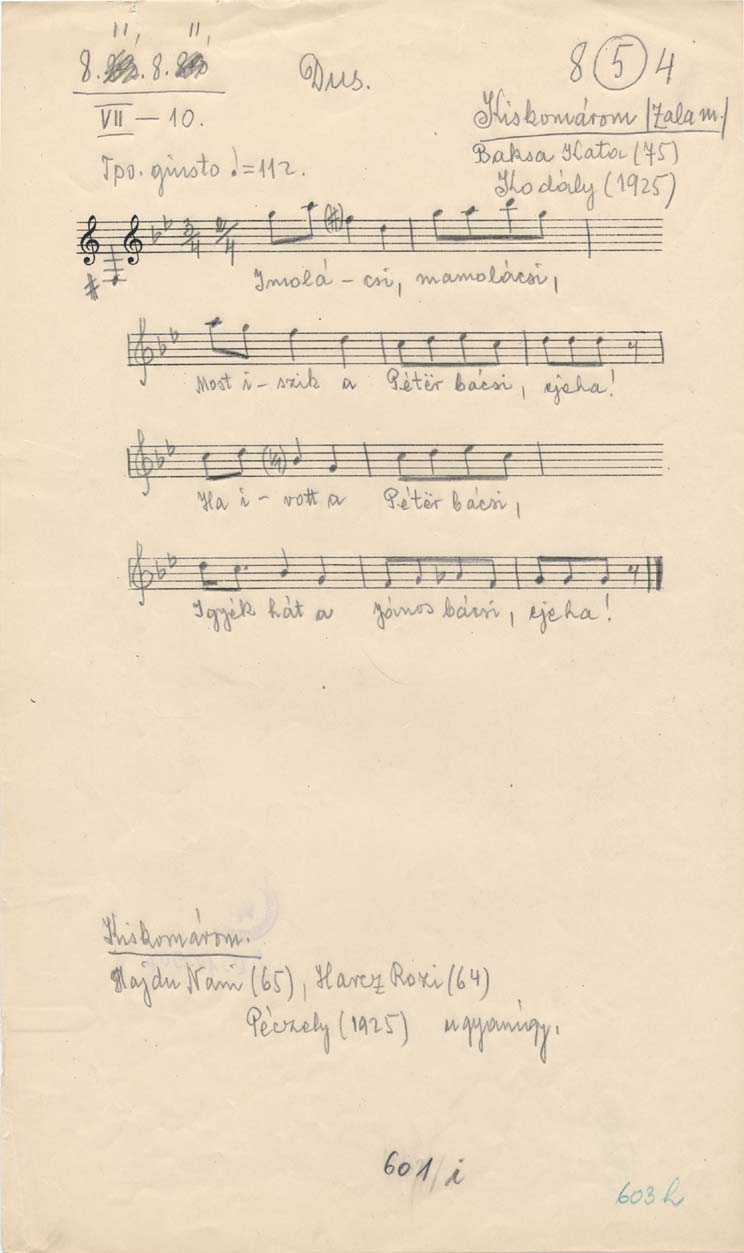 11, 11,
8. 8.
VII — 10.
Dus.
8 5 4
Kiskomárom /Zala m./
Baksa Kata (75)
Kodály (1925)
Tpo. giusto ♩=112.
3/4 2/4
Imolá - csi, mamolácsi,
Most i - szik a Pétër bácsi, ejeha!
Ha i - vott a Pétër bácsi,
Igyék hát a János bácsi, ejeha!
Kiskomárom.
Hajdu Nani (65), Harcz Rozi (64)
Péczely (1925) ugyanúgy.
601/i
603 h